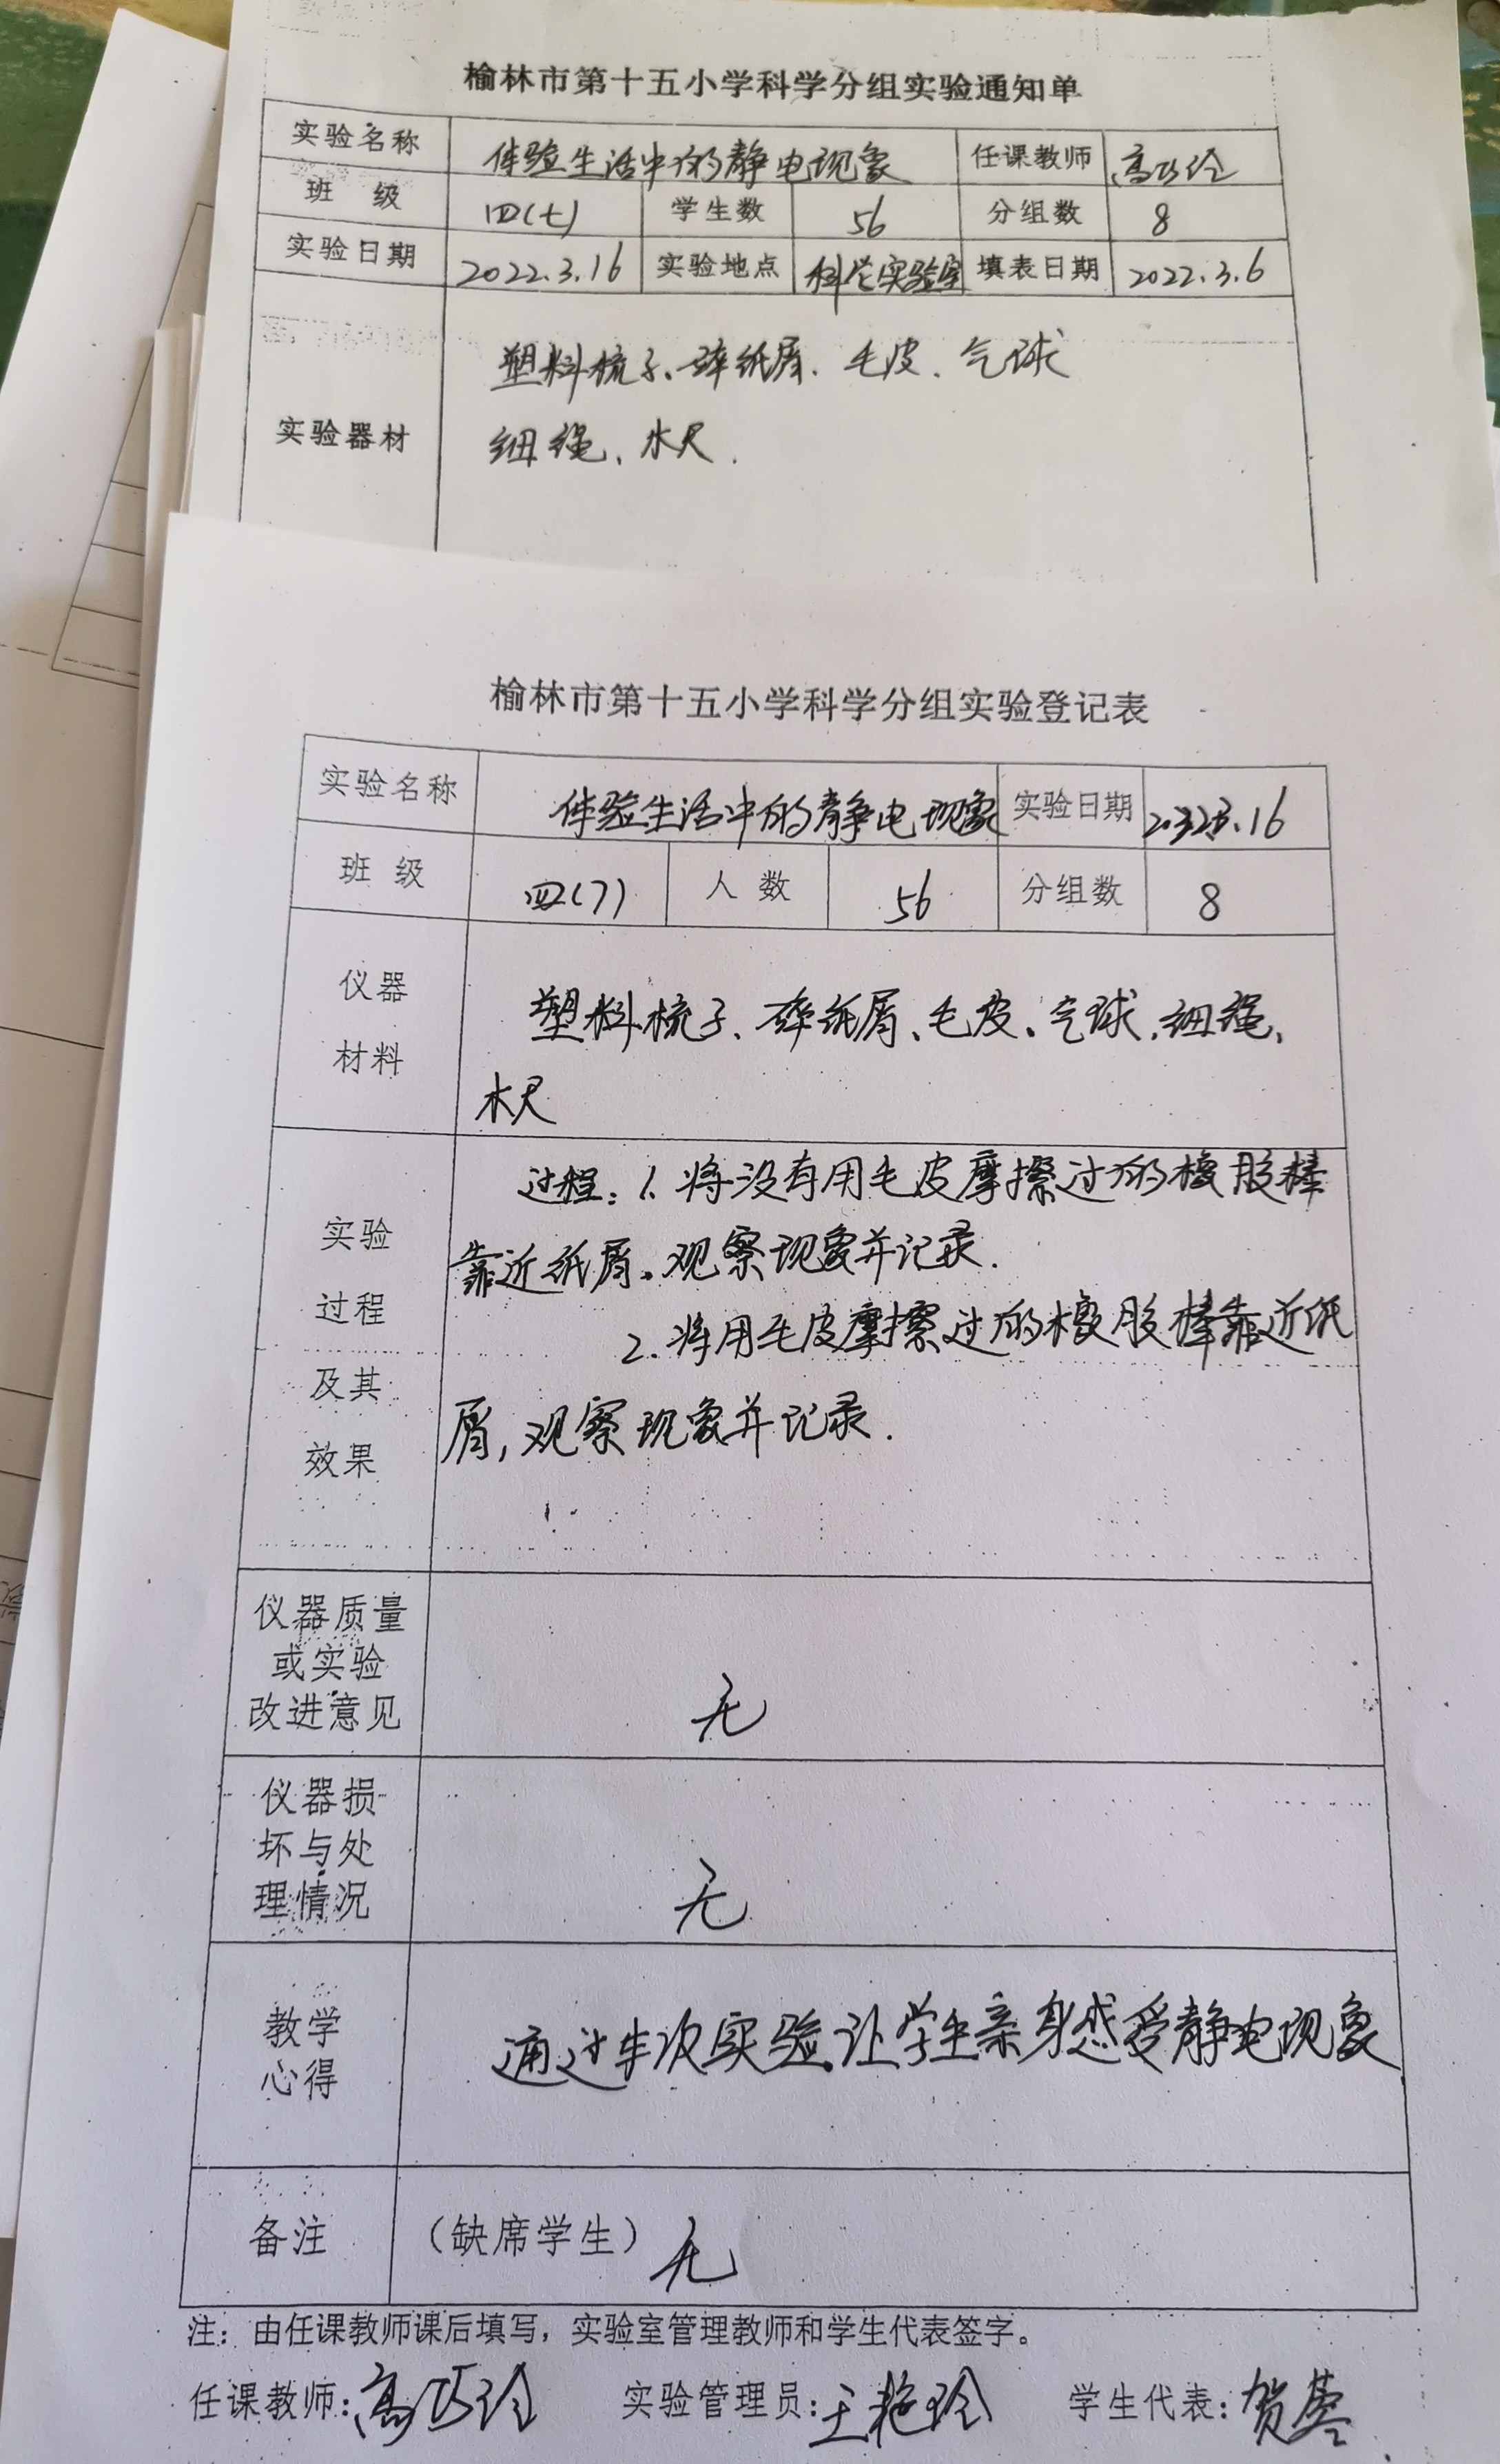 榆林市第十五小学科学分组实验通知单
实验名称 体验生活中的静电现象 任课教师 高巧玲
班 级 四(七) 学生数 56 分组数 8
实验日期 2022.3.16 实验地点 科学实验室 填表日期 2022.3.6
塑料梳子、碎纸屑、毛皮、气球
实验器材
细绳、木尺.
榆林市第十五小学科学分组实验登记表
实验名称 体验生活中的静电现象 实验日期
班 级 四(7) 人 数 56 分组数 8
仪器
塑料梳子、碎纸屑、毛皮、气球、细绳、
材料
木尺
过程:1.将没有用毛皮摩擦过的橡胶棒
实验
靠近纸屑,观察现象并记录.
过程
2.将用毛皮摩擦过的橡胶棒靠近纸
及其
屑,观察现象并记录.
效果
仪器质量
或实验
改进意见 无
仪器损
坏与处
理情况 无
教学
通过本次实验,让学生亲身感受静电现象
心得
备注 (缺席学生) 无
注:由任课教师课后填写,实验室管理教师和学生代表签字。
任课教师:高巧玲 实验管理员:王艳玲 学生代表:贺